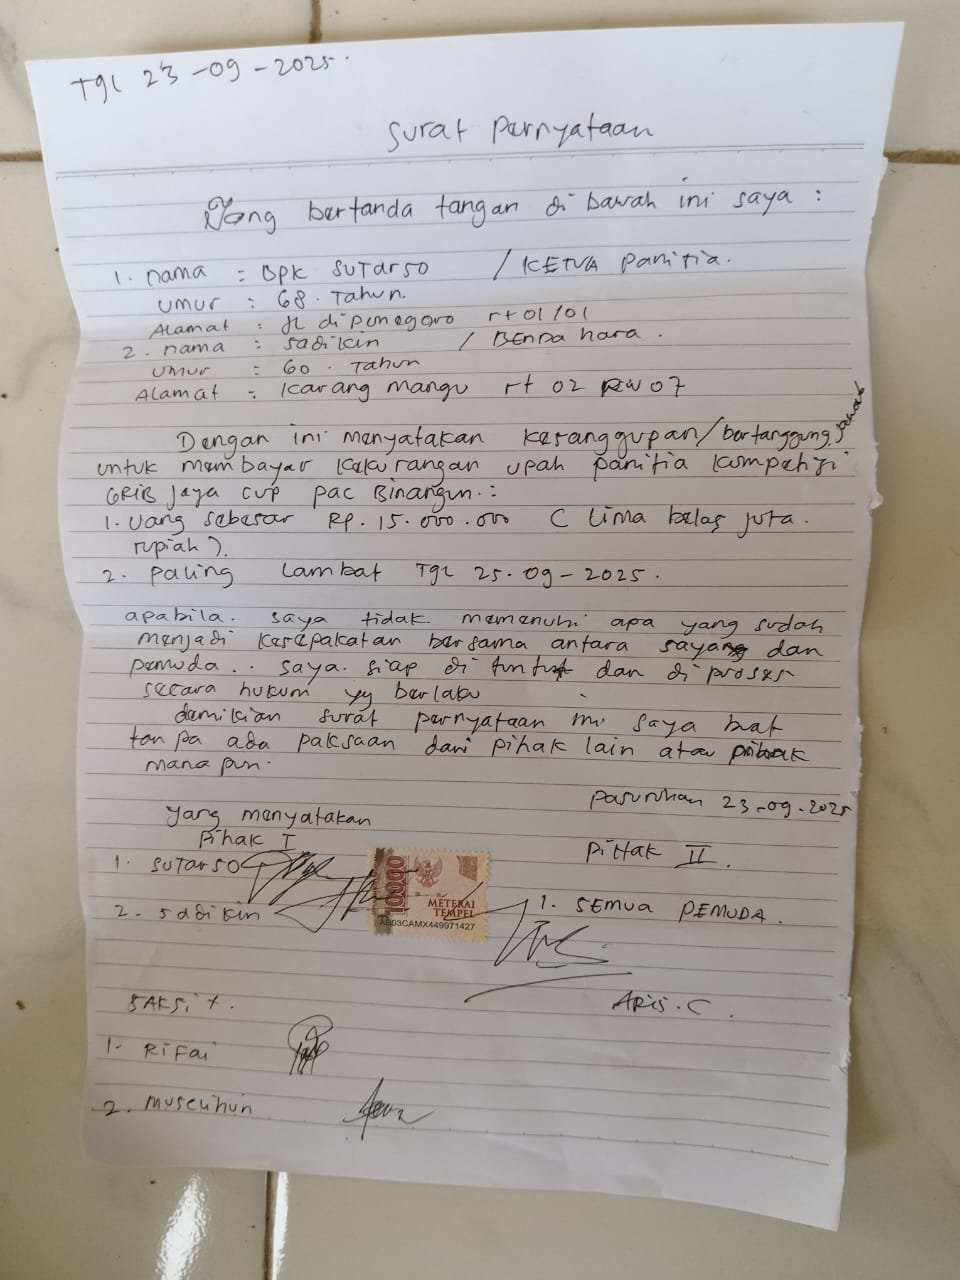 Tgl 23-09-2025.
Surat Pernyataan
Yang bertanda tangan di bawah ini saya :
1. nama : BPK SUTARSO / KETUA panitia.
umur : 68. Tahun.
Alamat : Jl diponegoro rt 01/01
2. nama : sadikin / BENDA hara.
umur : 60. Tahun
Alamat : Karang mangu rt 02 RW 07
Dengan ini menyatakan kesanggupan/bertanggung jawab
untuk membayar kekurangan upah panitia kompetisi
GRIB Jaya CUP pac Binangun.:
1. Uang sebesar RP. 15.000.000 ( Lima belas juta.
rupiah ).
2. paling Lambat Tgl 25-09-2025.
apabila. saya tidak. memenuhi apa yang sudah
menjadi kesepakatan bersama antara saya dan
pemuda.. saya. siap di tuntut dan di proses
secara hukum yg berlaku
demikian surat pernyataan ini saya buat
tanpa ada paksaan dari pihak lain atau pihak
mana pun.
Pasuruhan 23-09-2025
yang menyatakan
Pihak I
PiHak II.
1. SUTARSO
2. sadikin
10000
METERAI
TEMPEL
AB03CAMX449971427
1. SEMUA PEMUDA.
ARIS.C.
SAKSi +.
1. RiFai
2. Muslihun